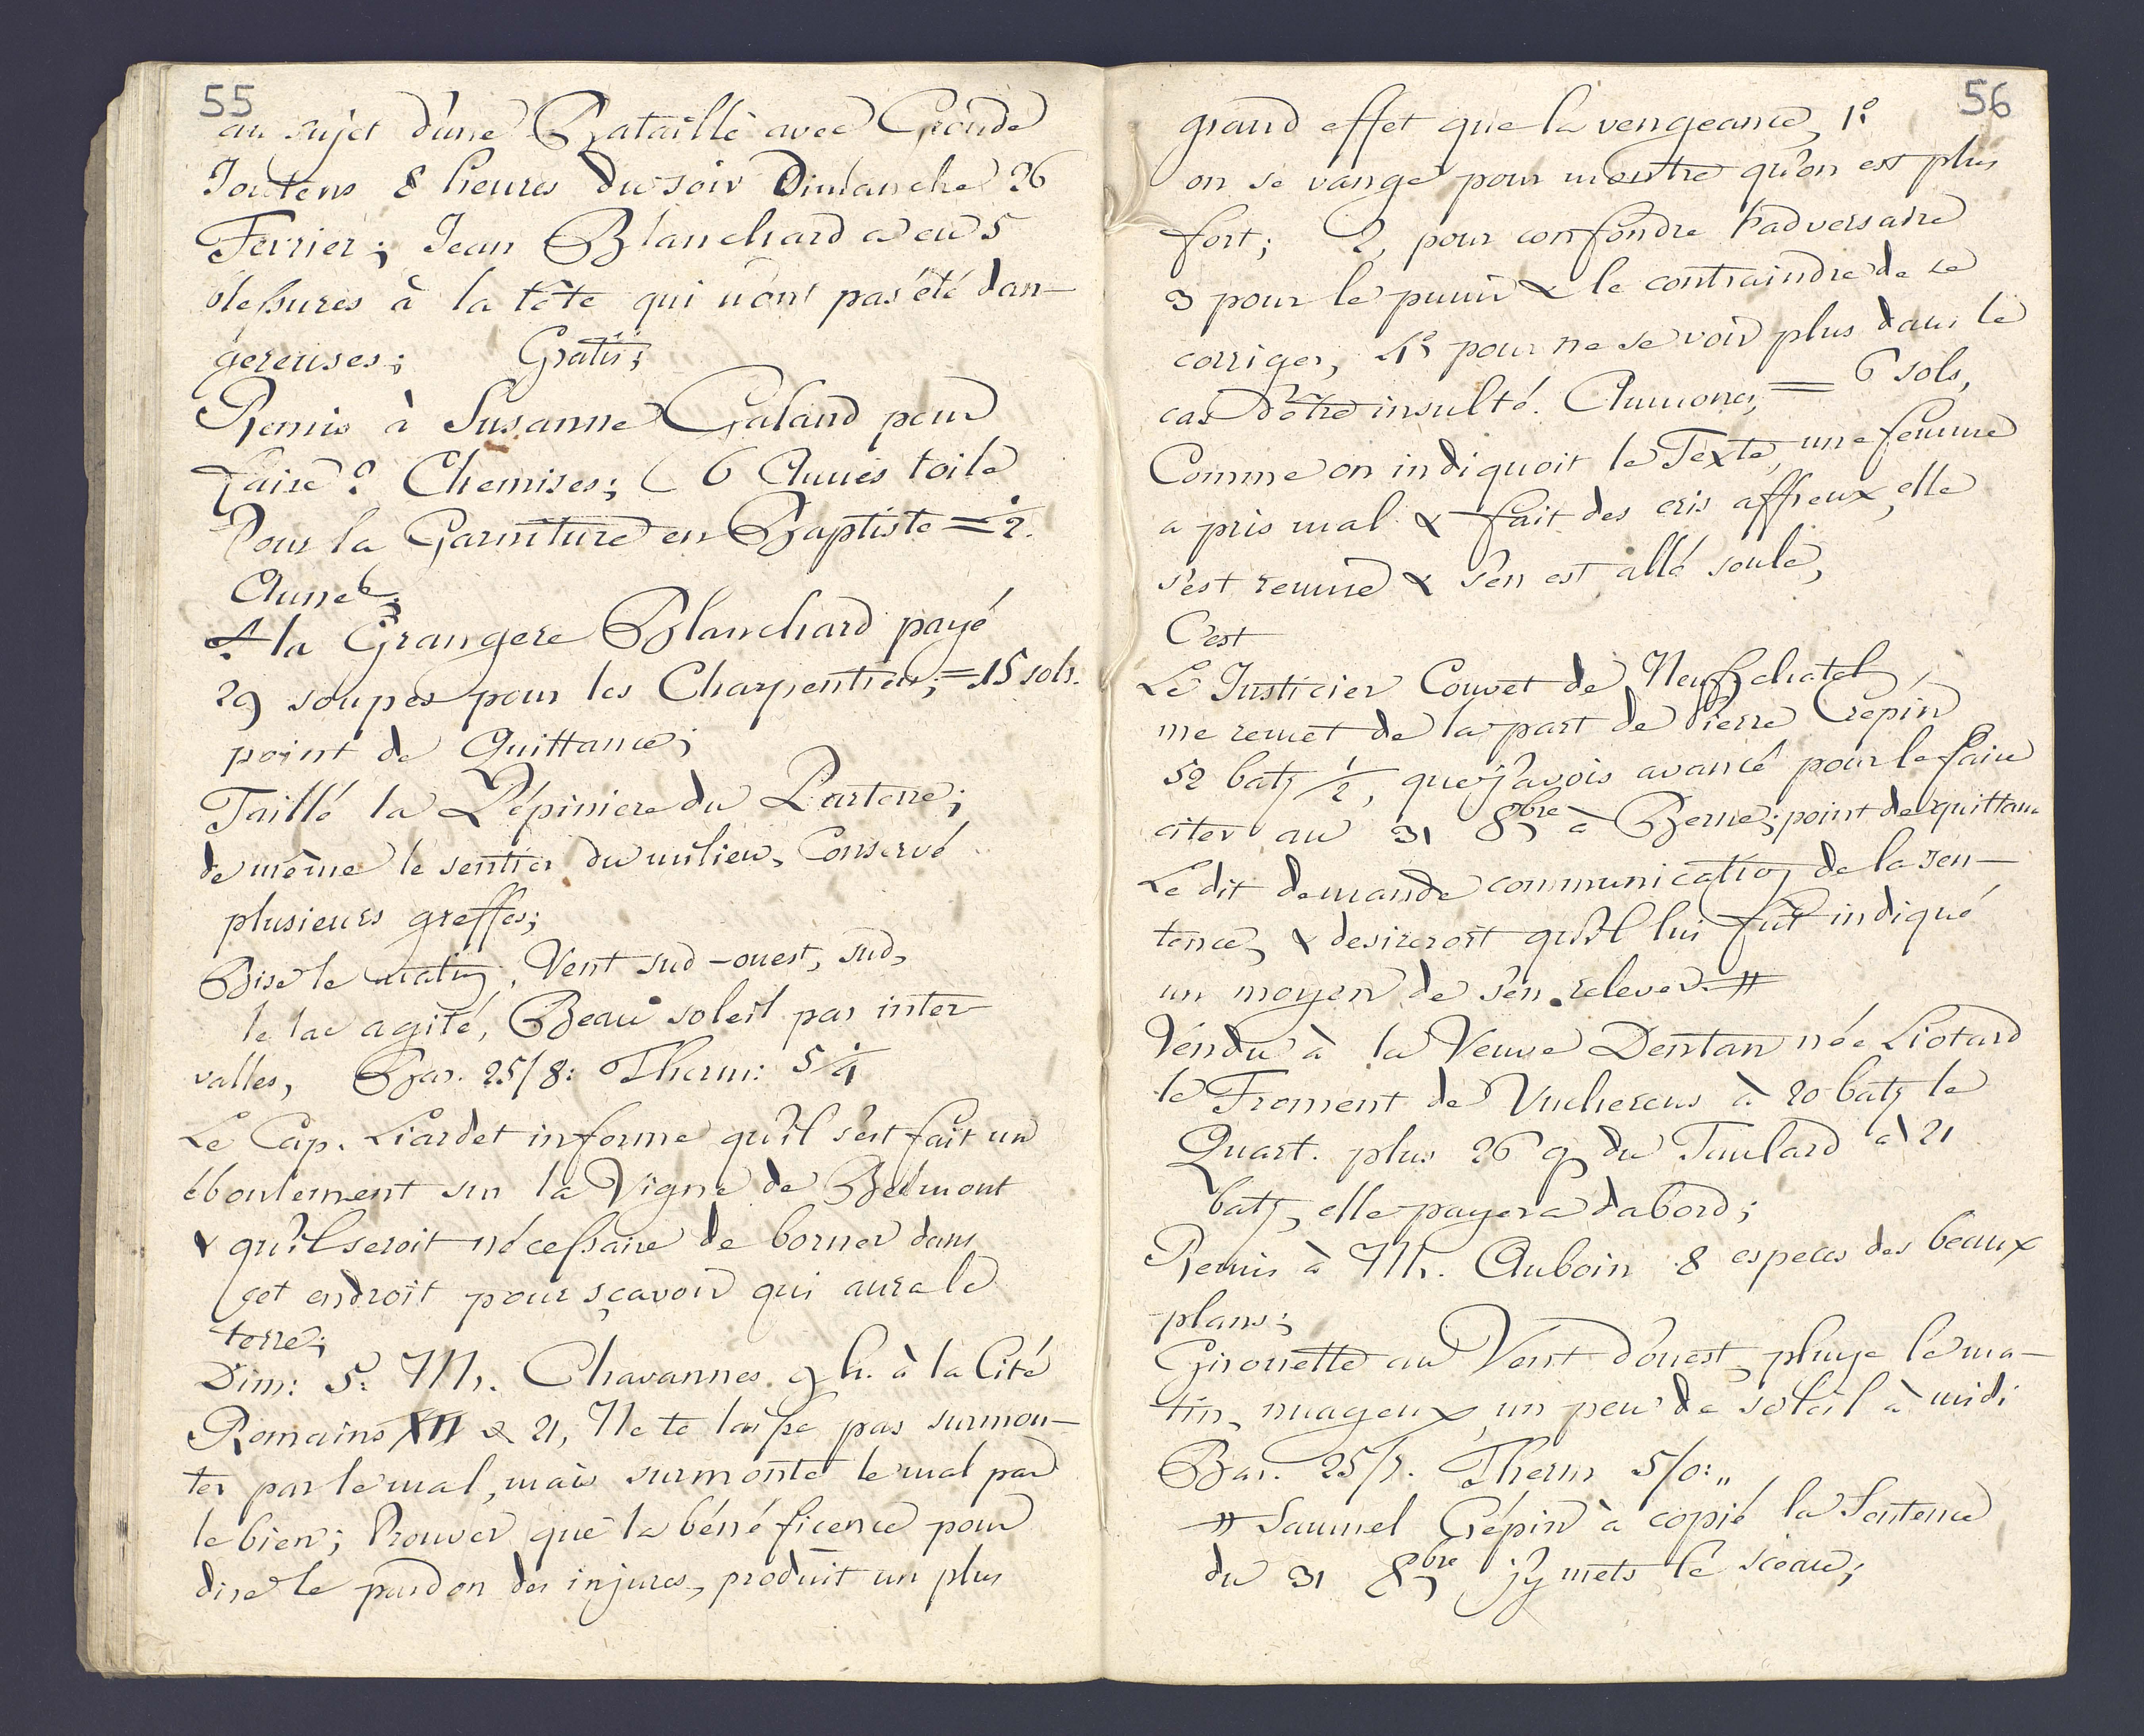 55
au sujet d'une Bataille avec
Joutens 8 heures du soir Dimanche 26
Fevrier; Jean Blanchard a eu 5
blessures à la tête qui n'ont pas été dan-
gereuses; Gratis;
Remis à Susanne Galand pour
faire 2 Chemises; 6 Aunes toile
Pour la Garniture en Baptiste = 1/2.
Aune.
A la Grangere Blanchard payé
29 soupes pour les Charpentier; = 15 sols.
point de Quittance;
Taillé la Pépiniere du Parterre;
de même le sentier du milieu, Conservé
plusieurs greffes;
Bise le matin, Vent sud-ouest, sud,
le lac agité, Beau soleil par inter
valles, Bar. 25/8: Therm: 5 1/4
Le Cap. Liardet informe qu'il s'est fait un
éboulement sur la Vigne de Belmont
& qu'il seroit nécessaire de borner dans
cet endroit pour sçavoir qui aura le
terre;
Dim: 5: Mr. Chavannes 9 h. à la Cité
Romains XII & 21, Ne te laisse pas surmon-
ter par le mal, mais surmonte le mal par
le bien; Prouver que la bénéficence pour
dire le pardon des injures, produit un plus
56
grand effet que la vengeance, 1º
on se vange pour montre qu'on est plus
fort; 2, pour confondre l'adversaire
3 pour le punir & le contraindre de se
corriger, 4º pour ne se voir plus dans le
cas d'être insulté. Aumone, = 6 sols,
Comme on indiquoit le Texte, une femme
a pris mal & fait des cris affreux, elle
s'est remise & s'en est allé soule,
C'est
Le Justicier Couvet de Neufchatel,
me remet de la part de Pierre Crépin
52 batz 1/2, que j'avois avancé pour le faire
citer au 31 8bre à Berne; point de quittance
Le dit demande communication de la sen-
tence, & desireroit qu'il lui fût indiqué
un moyen de s'en relever #
Vendu à la Veuve Dentan née Liotard
le Froment de Vucherens à 20 batz le
Quart. plus 26 q du Taulard à 21
batz, elle payera d'abord;
Remis à Mr. Auboin 8 especes des beaux
plans;
Girouette au Vent d'ouest, pluye le ma-
tin, nuageux, un peu de soleil à midi
Bar. 25/7. Therm 5/0:„
# Samuel Crépin à copié la Sentence
du 31 8bre j'y mets le sceau;